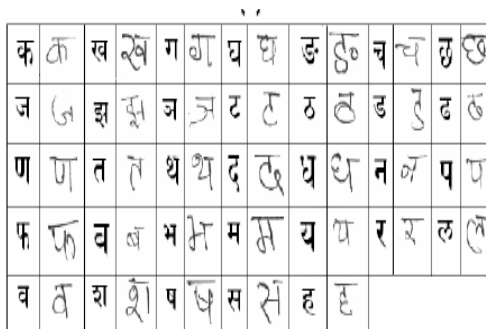 क क ख ख ग ग घ घ ङ ङ च च छ छ
ज ज झ झ ञ ञ ट ट ठ ठ ड ड ढ ढ
ण ण त त थ थ द द ध ध न न प प
फ फ ब ब भ भ म म य य र र ल ल
व व श श ष ष स स ह ह